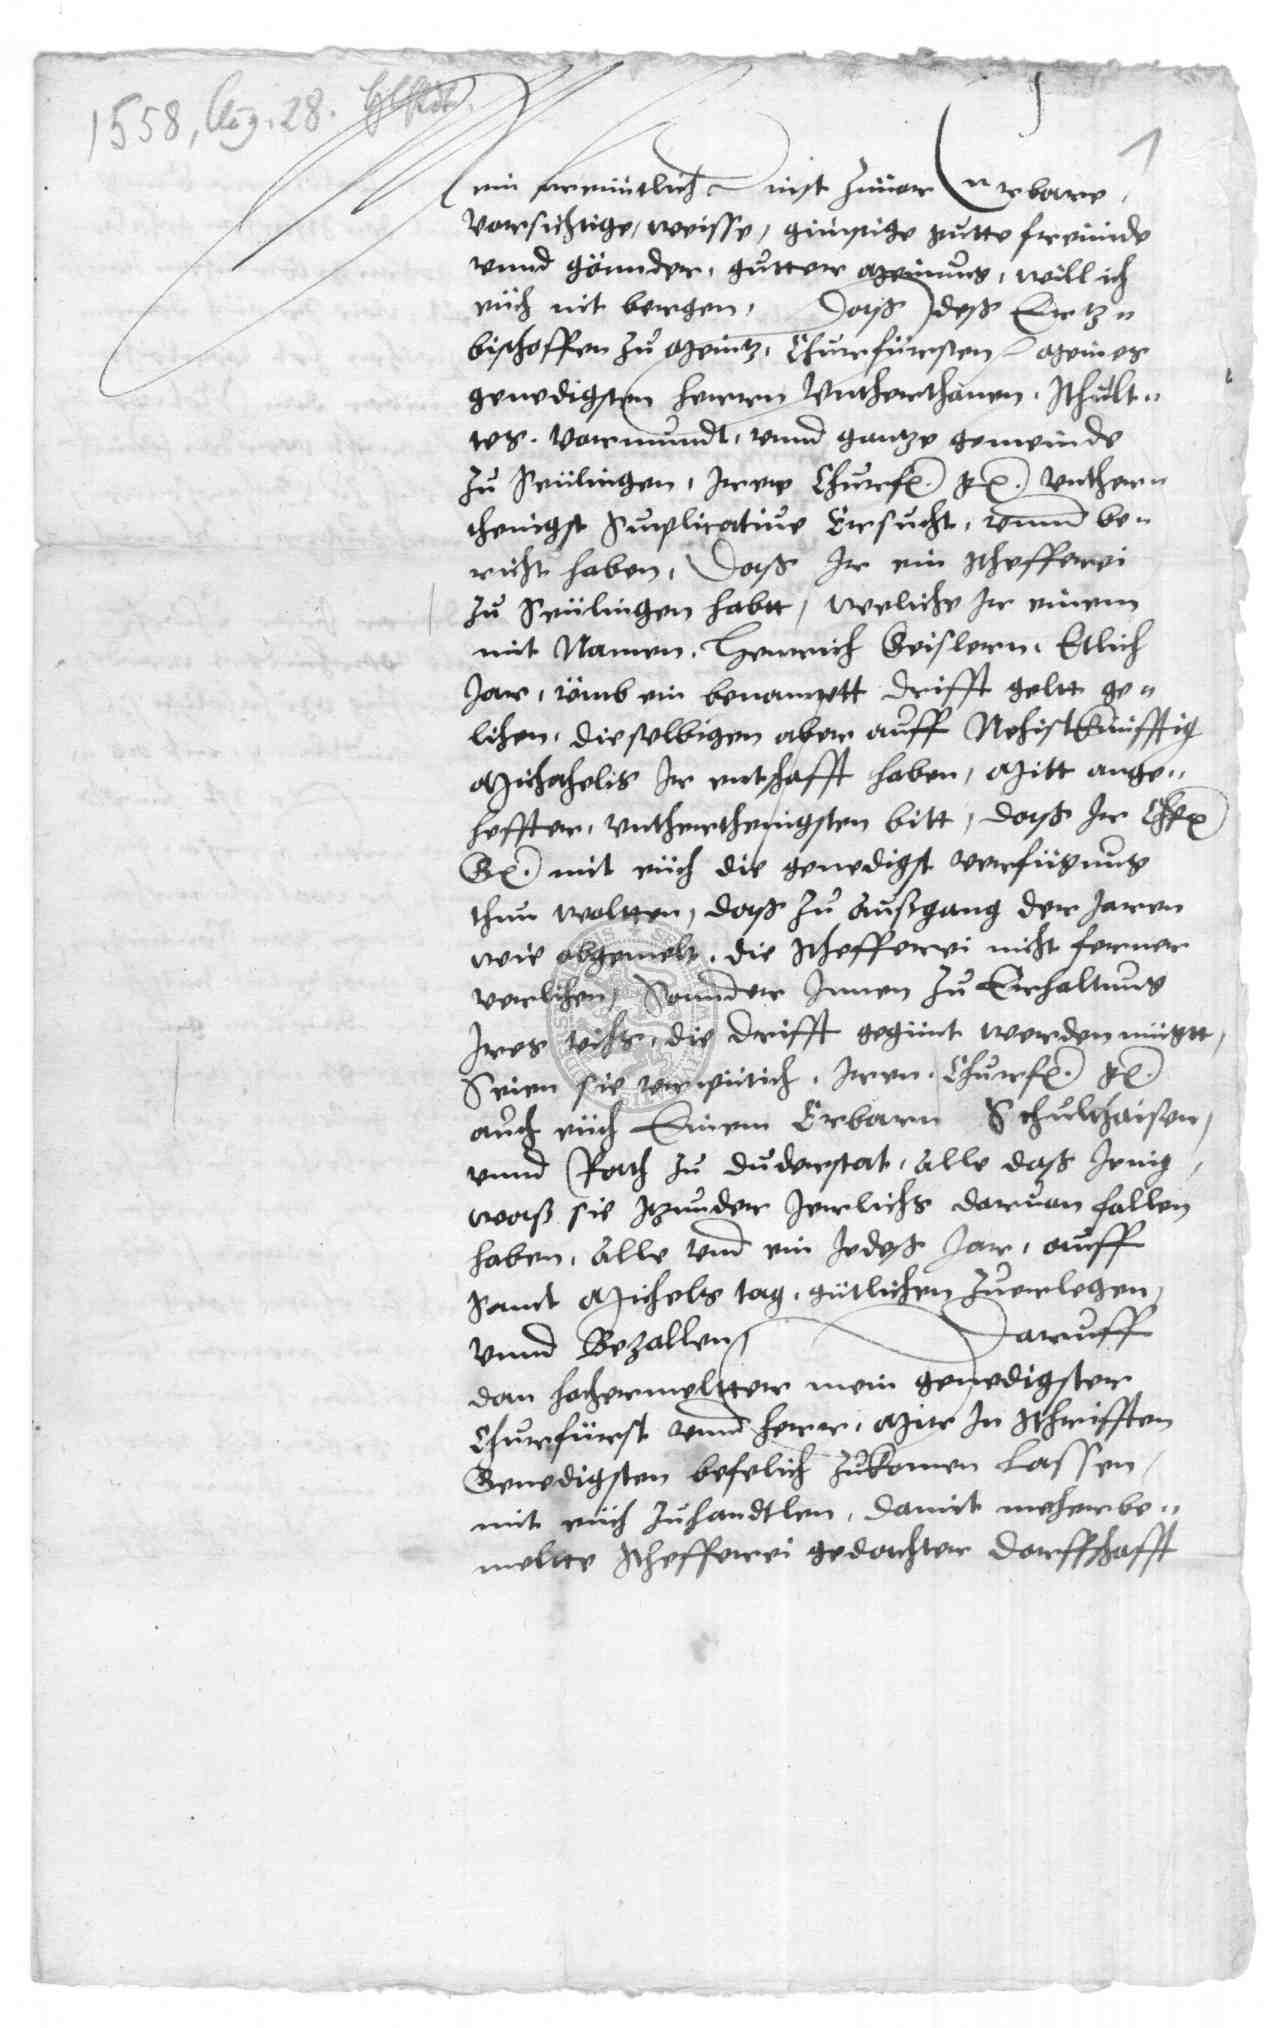 1558, Aug. 28.
1
Mein freuntlich Dinst zuuor Erbare,
Vorsichtige, weisse, günstige gutte freunde
vnnd gönnder, gutter Meinung, will ich
eüch nit bergen, Daß deß Ertz„
bischoffen zu Meintz, Churfürsten, Meines
genedigsten herren Vntherthanen, Schult„
tes. Vormundt, vnnd gantze gemeinde
zu Seülingen, Irere Churf. G. vnther„
thenigst Suplicative Ersucht, vnnd be„
richt haben, Daß Ir ein Schefferei
zu Seülingen habtt, weliche Ir einem
mit Namen, Henrich Geislern, Etlich
Jar, vmb ein benantt drifft geltt ge„
lihen, dieselbigen aber auff Nehistkünfftig
Michahelis Ir entschafft haben, Mitt ange„
heffter, vntherthenigsten bitt, daß Ir Chf
G. mit eüch die genedigst verfügung
thun woltten, daß zu Außgang der Jaren
wie abgemelt, die Schefferei nicht ferner
verlihen, Sonnder Innen zu Erhaltung
Ires vihs, die drifft gegünt werden mügtt,
Seien sie erpütich, Iren Churf. G.
auch eüch Einem Erbarn Schulthaisen,
vnnd Rath zu duderstat, Alle daß Jenig,
waß sie Itzunder Jerlichs daruan fallen
haben, Alle vnd ein Jedeß Jar, auff
Sanct Michels tag, gütlichen zuerlegen,
vnnd Bezallen, Daruff
dan hochermeltter mein genedigster
Churfürst vnnd herr, Mir In Schrifften
Genedigsten befelich zukomen lassen,
mit eüch zuhandtlen, damit meherbe„
meltte Schefferei gedachter dorffschafft